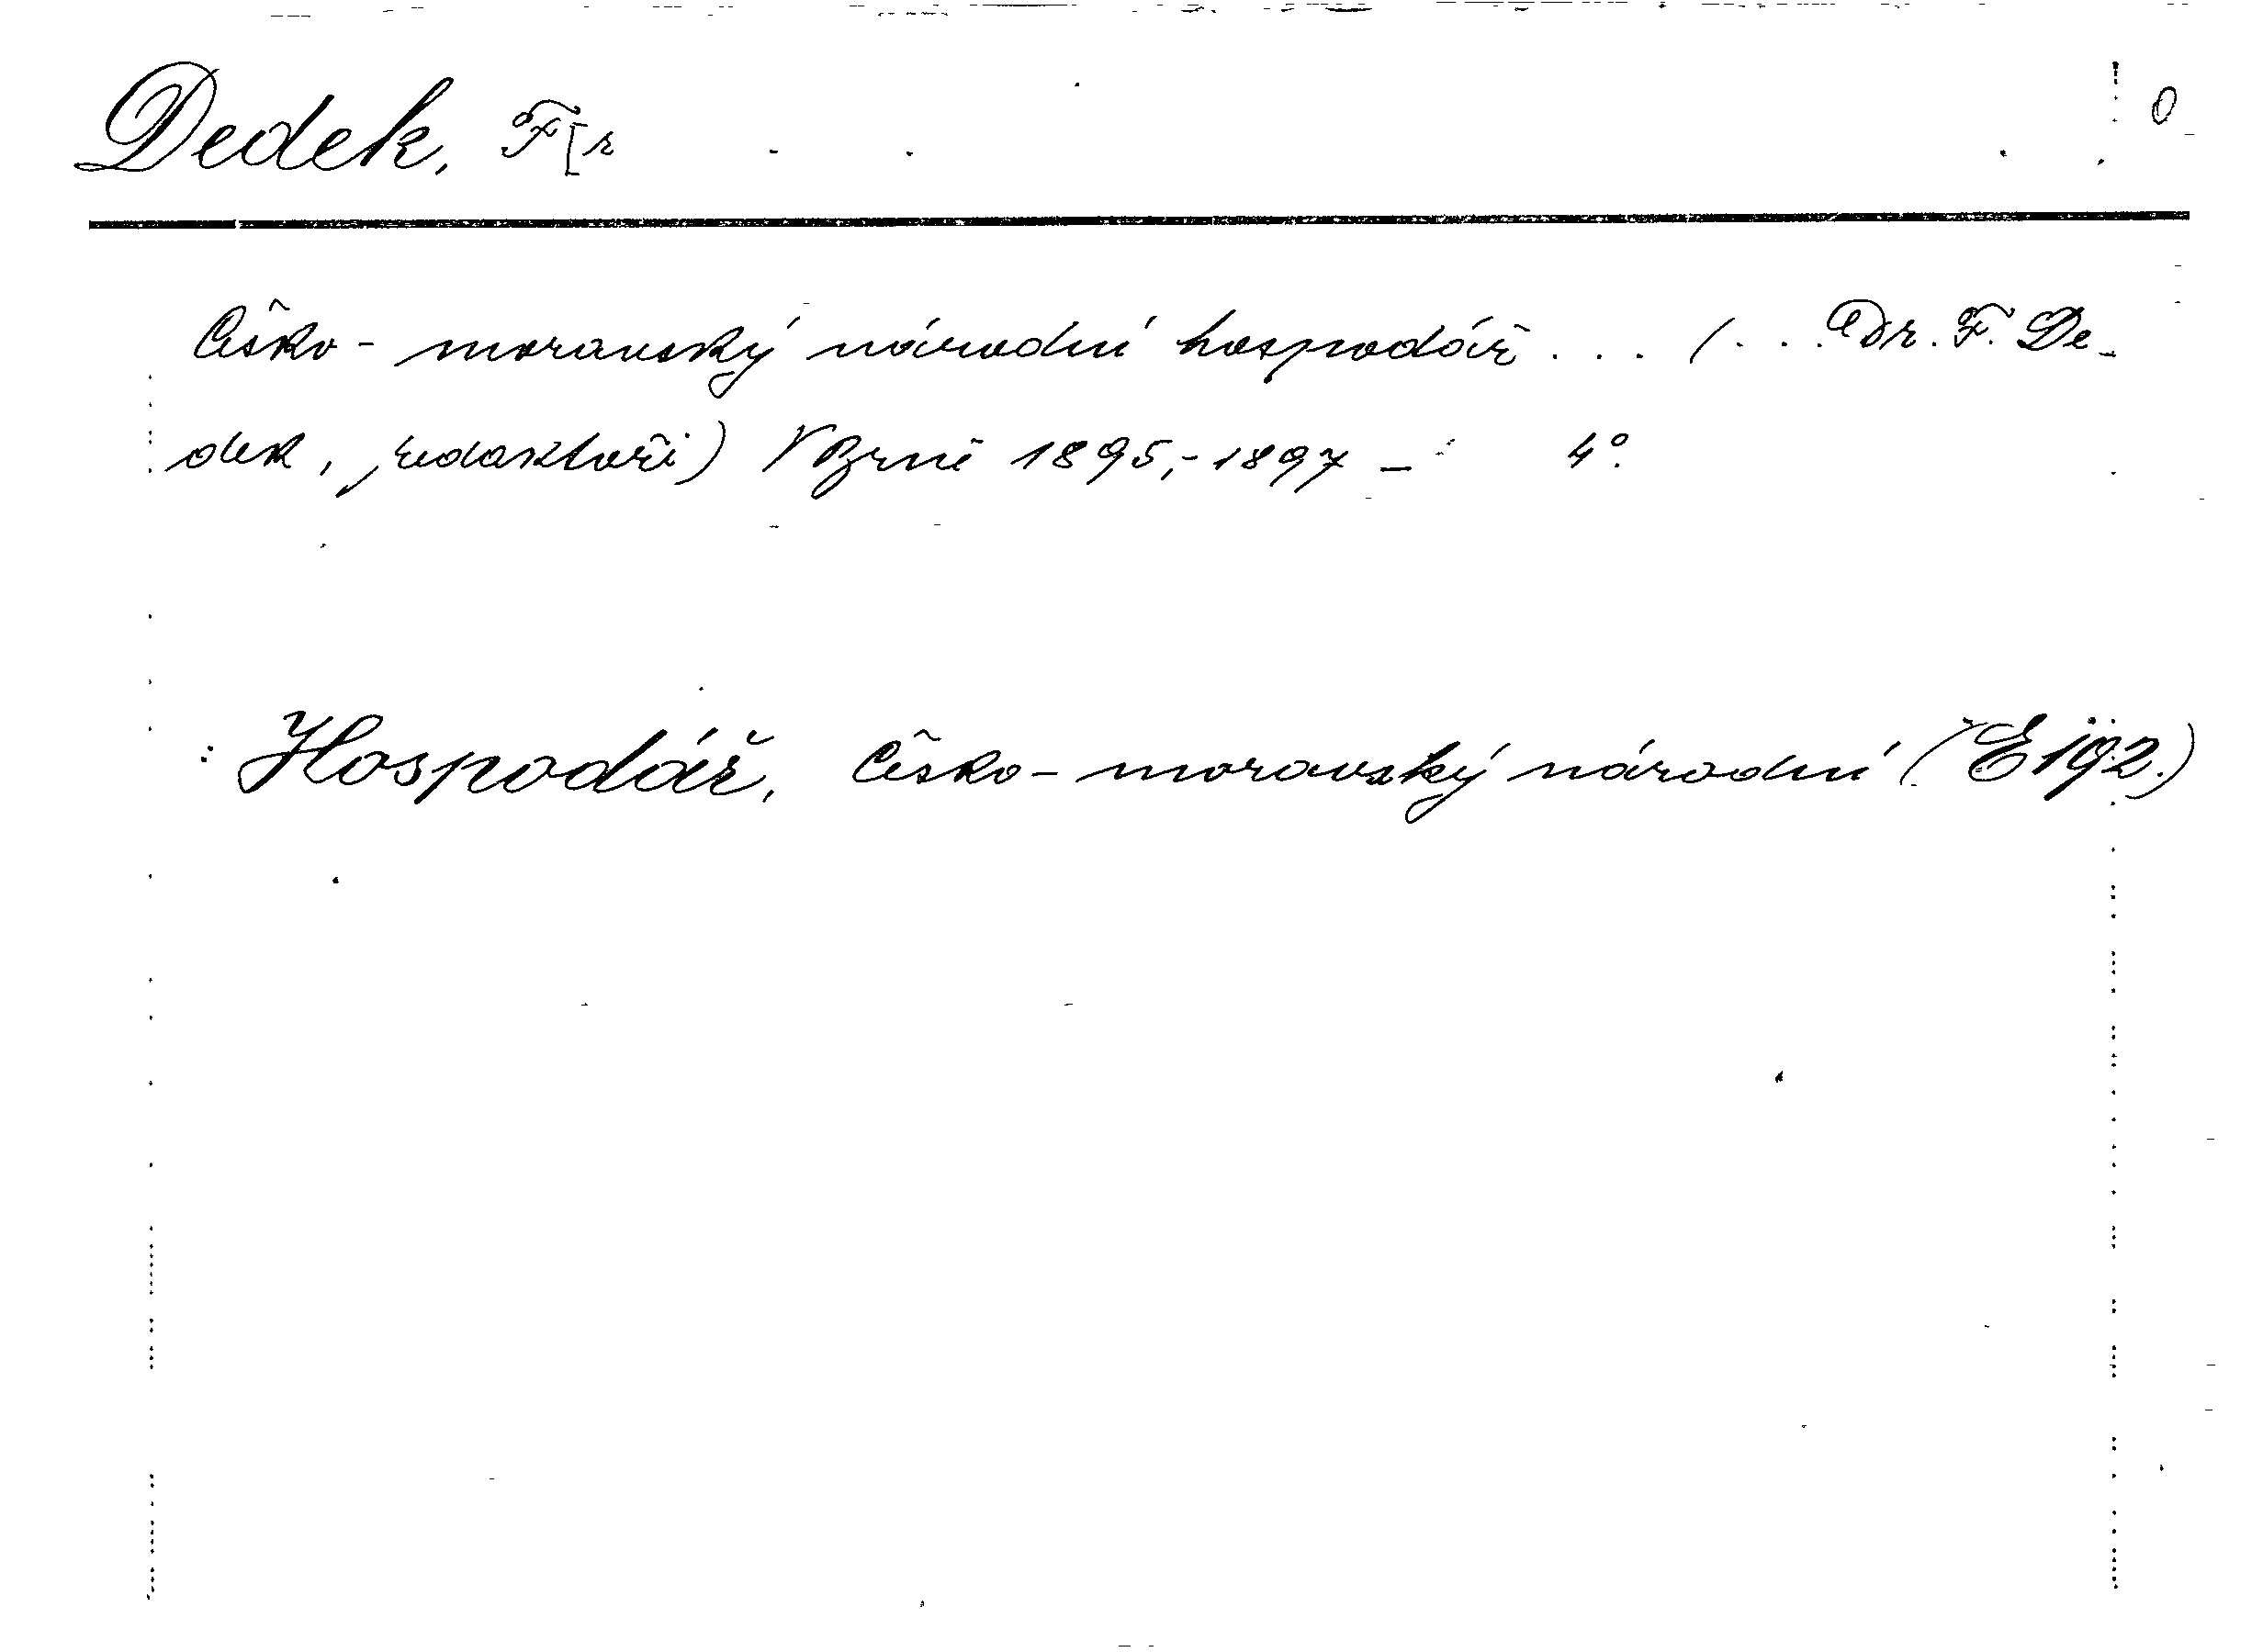 Dedek, F[r
0
Česko-moravský národní hospodář... (... Dr. F. De-
dek, redaktoři) V Brně 1895,-1897- 4°.
Hospodář, Česko-moravský národní (E 192.)